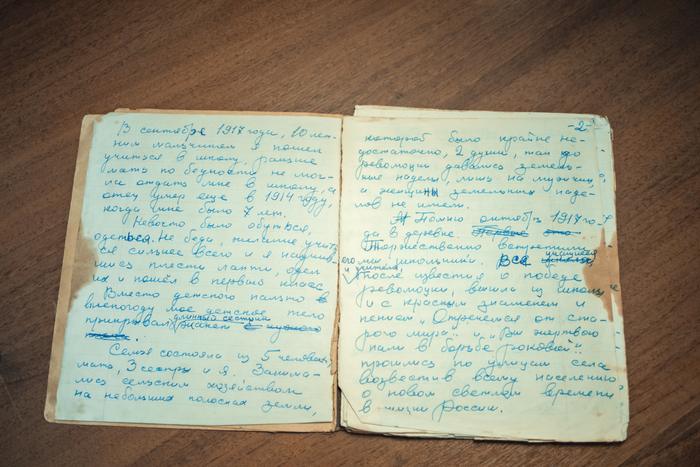 В сентябре 1917 года, 10 лет-
ним мальчиком я пошел
учиться в школу, раньше
мать по бедности не мог-
ла отдать мне в школу, а
отец умер еще в 1914 году,
когда мне было 7 лет.
Невосто было обуться,
одеться. Не беда, желание учить
ся сильнее всего и я научив-
шись плести лапти, одел
их и пошёл в первый класс.
Вместо детского пальто в
непогоду мое детское тело
длинный сестрин
прикрывал
Семья состояла из 5 человек,
мать, 3 сестры и я. Занима-
лись сельским хозяйством
на небольших полосках земли,
-2-
которой было крайне не-
достаточно, 2 души, так до
революции давались земель-
ные наделы лишь на мужчин,
а женщины земельных наде-
лов не имели.
Помню октябрь 1917 го-
да в деревне. Первые это
Торжественно встретили
его мы школьники Все учащиеся
и учителя,
После известия о победе
революции, вышли из школы
и с красным знаменем и
пением „Отречемся от ста-
рого мира..." „Вы жертвою
пали в борьбе роковой"..
прошлись по улицам села
возвестив всему населению
о новом светлом времени
в жизни России.